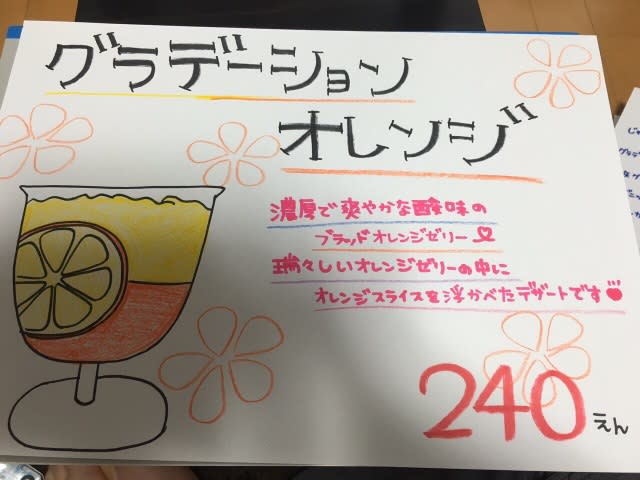 グラデーション
オレンジ
濃厚で爽やかな酸味の
ブラッドオレンジゼリー
瑞々しいオレンジゼリーの中に
オレンジスライスを浮かべたデザートです
240えん